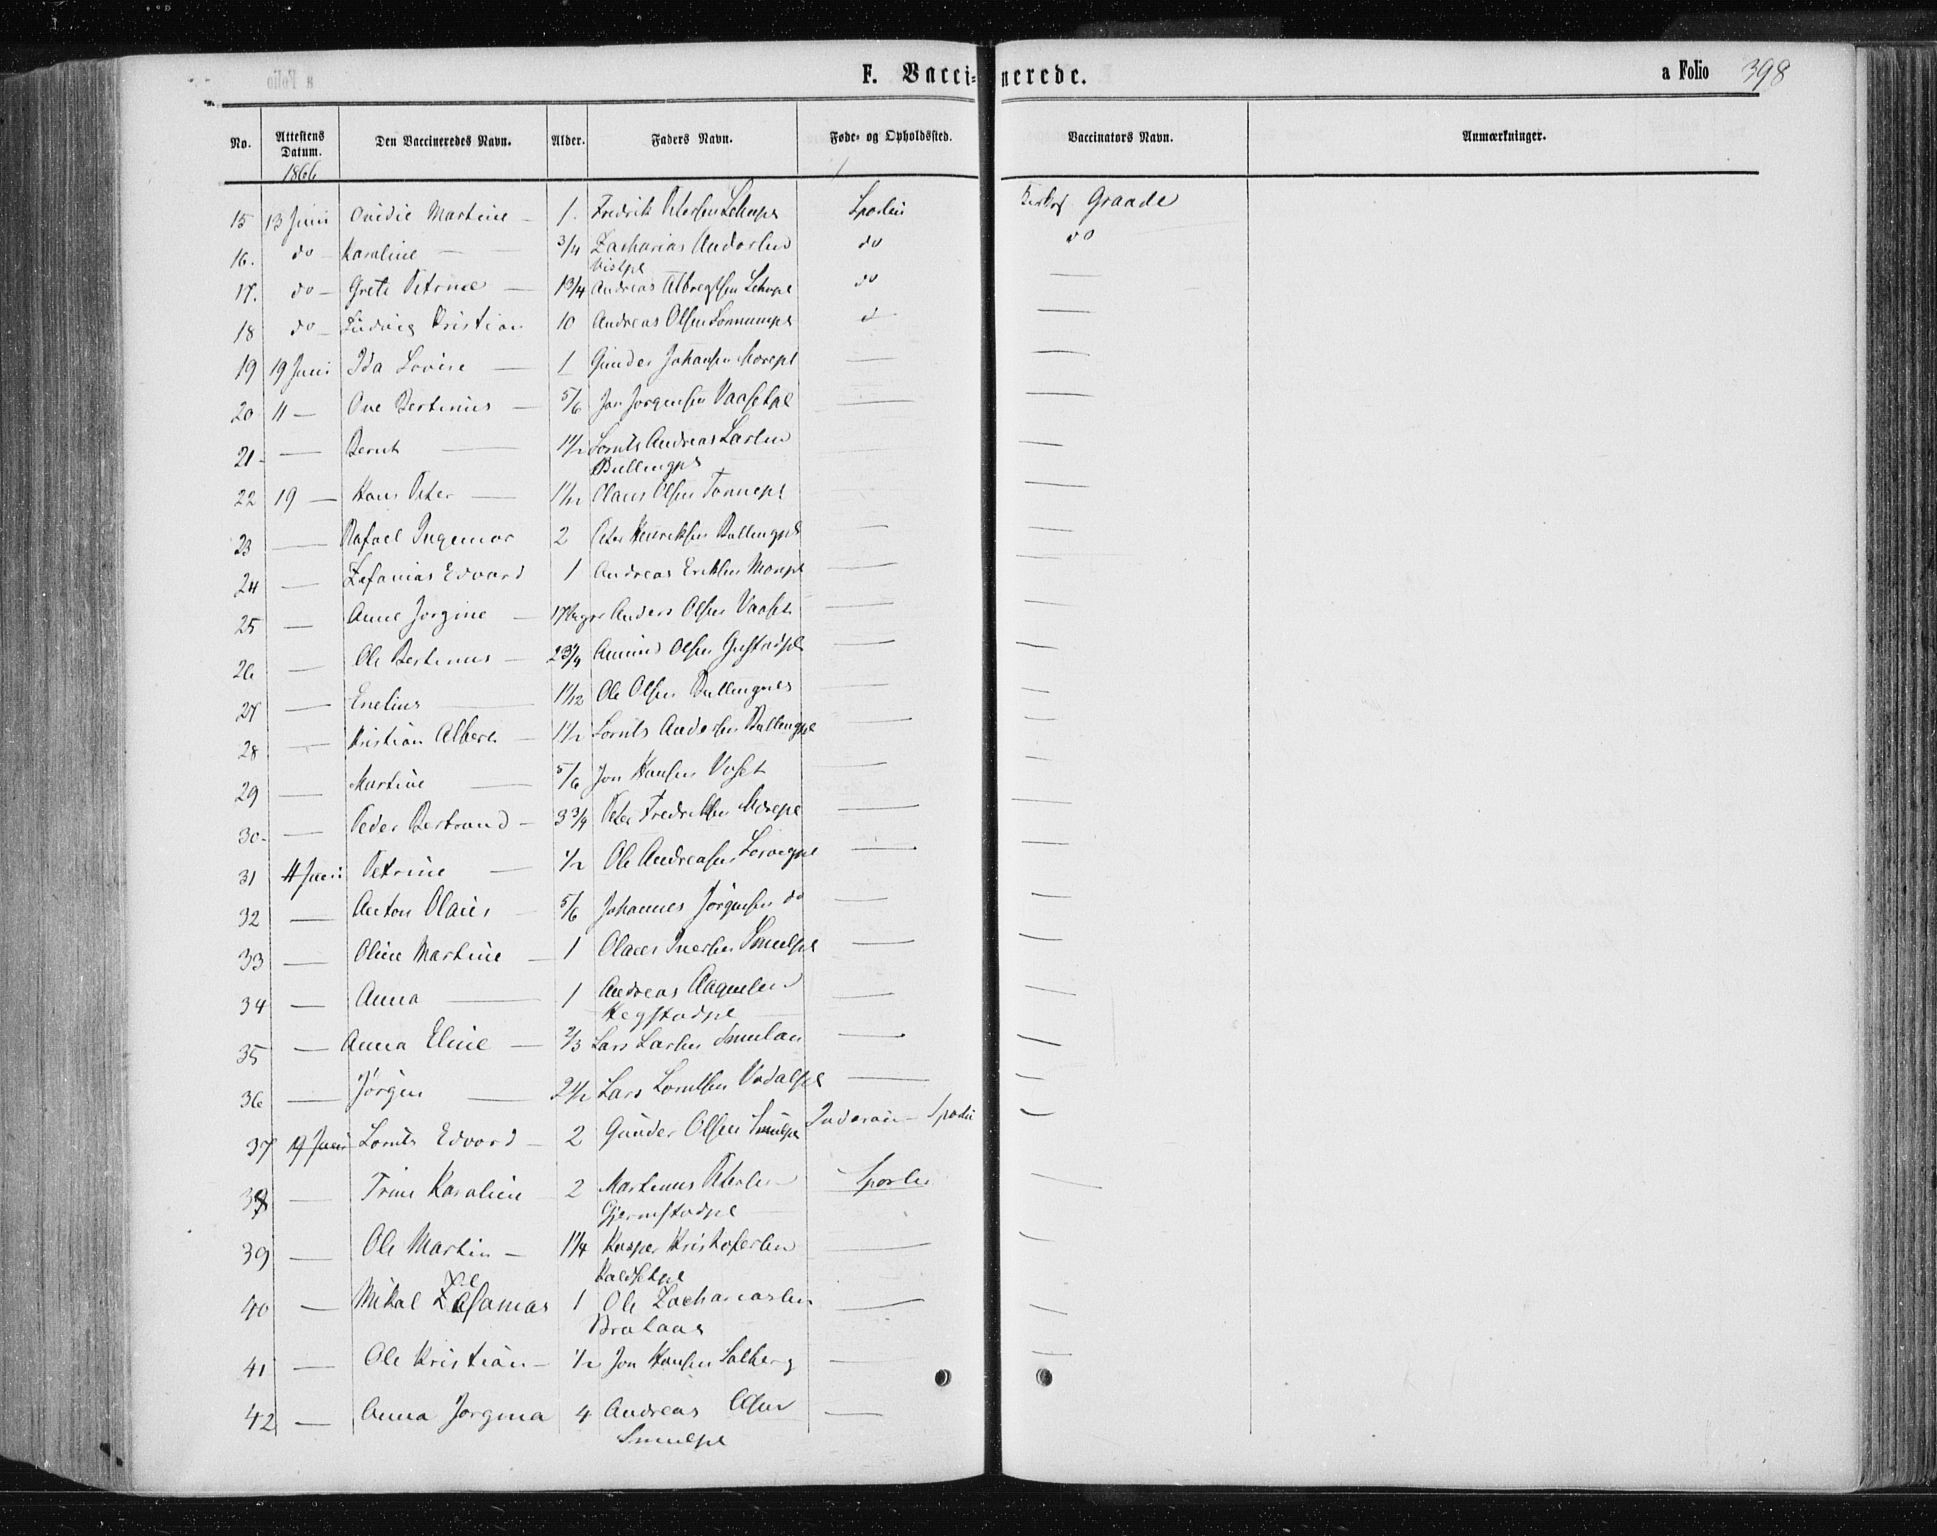 F. Vaccinerede. a Folio 398
No. Attestens Datum. Den Vaccineredes Navn. Alder. Faders Navn. Føde- og Opholdssted. Vaccinators Navn. Anmærkninger.
1866
15 13 Juni Ovidie Martine - 1. Fredrik Sparbu Graade
16. do - Karoline - 3/4 Zacharias Anderssen do do
Vistpl
17. do - Grete Petrine - 1 3/4 Andreas Albregtsen do
18 do - Ludvig Kristian 10 Andreas Olsen
19 19 Juni Ida Lovise - 1 Gunder Johansen Morepl
20 11 - Ove Bertinus - 5/6 Jon Jørgensen Vaasetpl
21 - Bernt - 1 1/2 Lornts Andreas Larsen
Bullingpl
22 19 - Hans Peter - 1 1/12 Olaus Olsen
23 - Rafael Ingemar 2 Peter Henriksen Bullingpl
24 - Zefanias Edvard 1 Andreas Eriksen Morepl
25 - Anne Jørgine - Anders Olsen Vaaset
26 - Ole Bertinus - 2 3/4 Olsen
27 - Enelius - 1 1/12 Ole Olsen Bullingnes
28 - Kristian Albert - 1 1/2 Lornts Anderssen Bullingpl
29 - Martine - 5/6 Jon Hansen Vaset
30 - Peder Bertrand - 3 3/4 Peter Fredriksen Morepl
31 11 Juni Petrine - 1/2 Ole Andreasen
32 - Anton Olaus - 5/6 Johannes Jørgensen do
33 - Oline Martine - 1 Olaus Iversen
34 - Anna - 1 Andreas Aagesen
Hegstadpl
35 - Anna Eline - 2/3 Lars Larsen
36 - Jørgen - 2 1/2 Lars Lorntsen Vodalspl
37 19 Juni Lornts Edvard - 2 Gunder Olsen Inderøen - Sparbu
38 - Trine Karoline 2 Martinus Petersen Sparbu
Gjermstadpl
39 - Ole Martin - 1 1/4 Kasper Kristofersen
40 - Mikal Zefanias 1 Ole Zachariassen
Brataas
41 - Ole Kristian - 1/2 Jon Hansen Salberg
42 - Anna Jørgina 4 Andreas Olsen